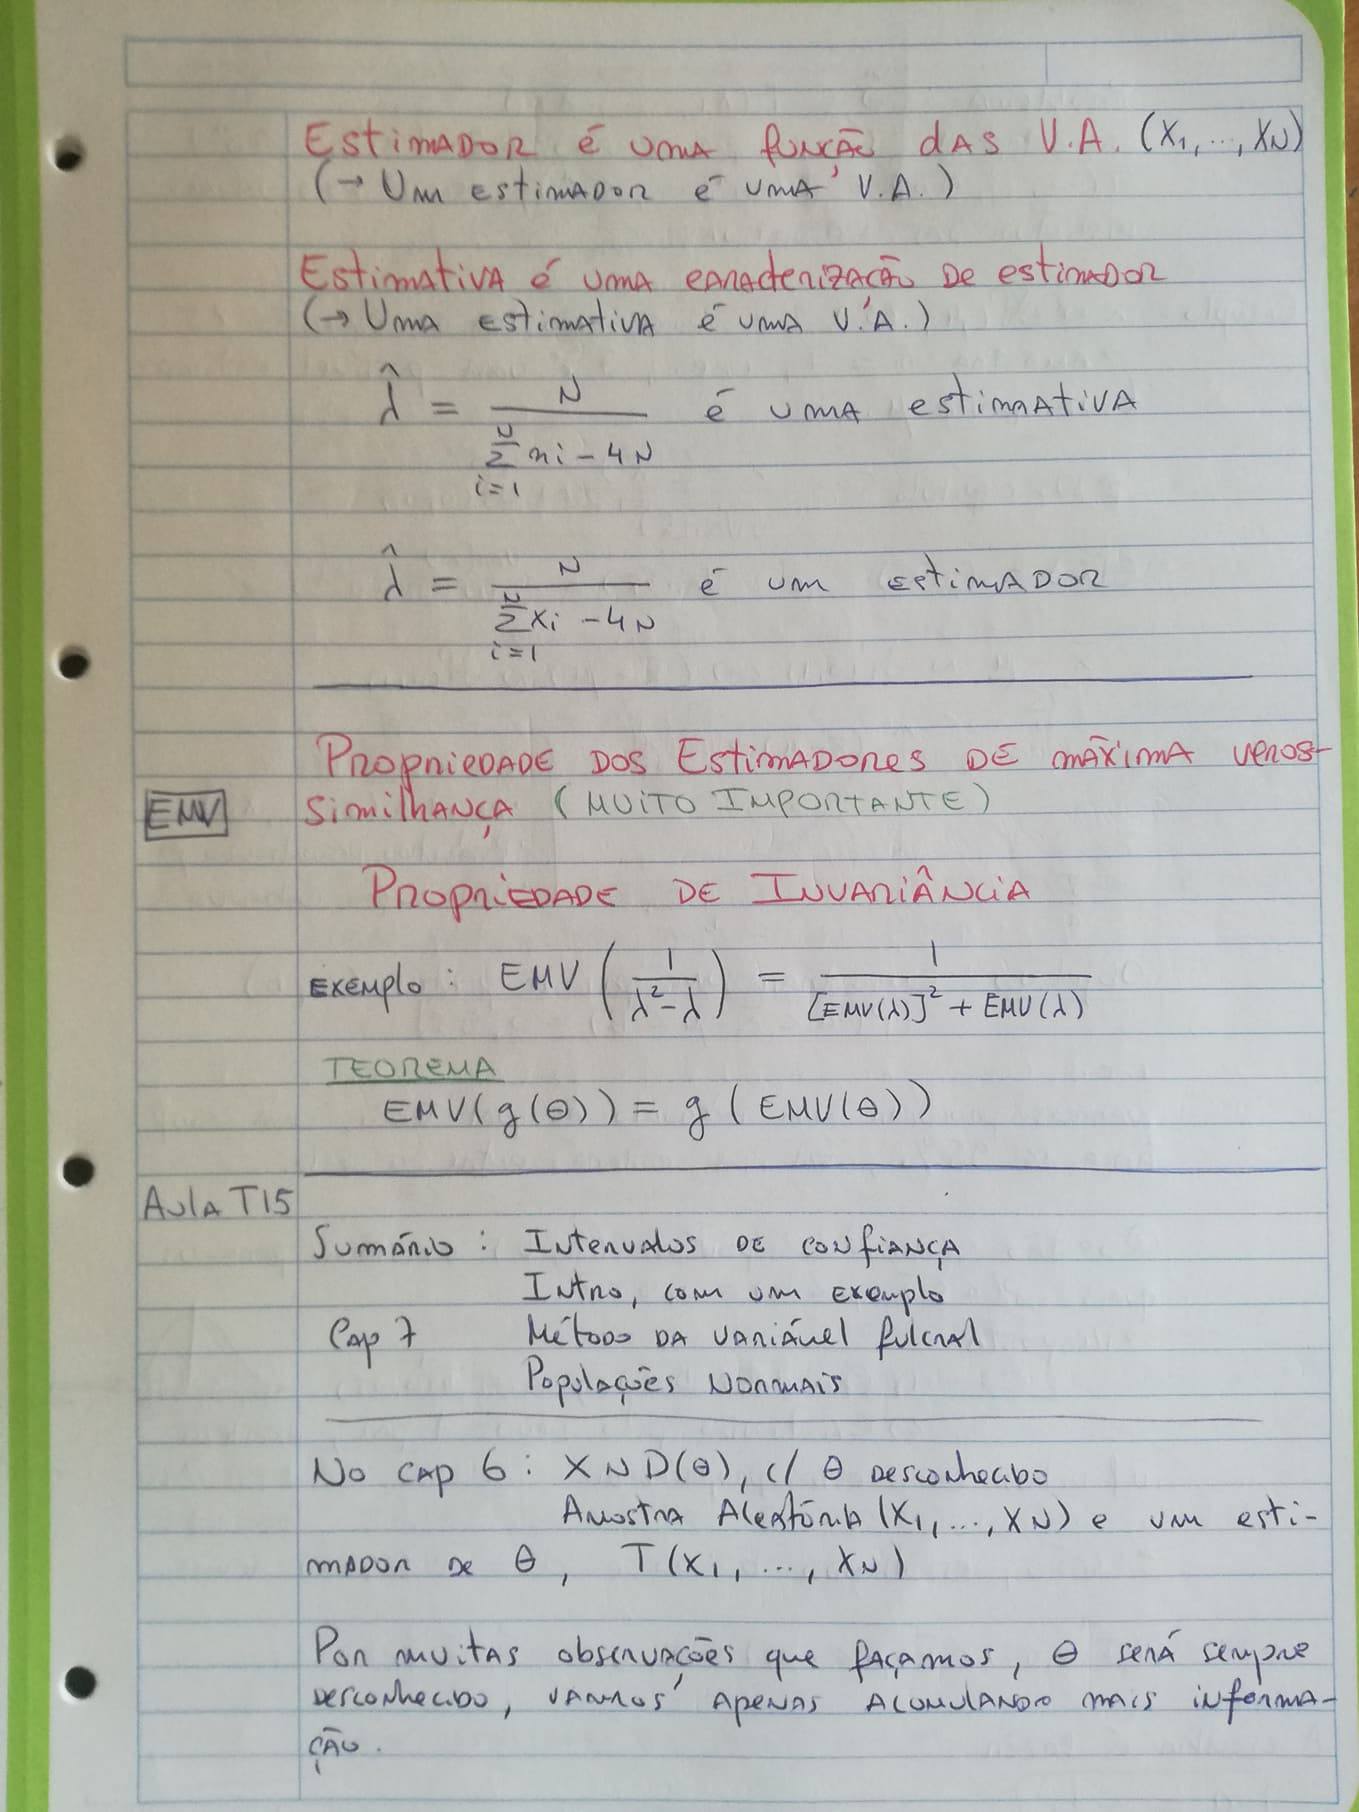 Estimador é uma função das V.A. (X1, ..., XN)
(→ Um estimador é uma V.A.)
Estimativa é uma caracterização de estimador
(→ Uma estimativa é uma V.A.)
λ̂ = N / (∑_{i=1}^{N} xi - 4N) é uma estimativa
λ̂ = N / (∑_{i=1}^{N} Xi - 4N) é um estimador
Propriedade dos Estimadores de máxima veros-
EMV similhança (MUITO IMPORTANTE)
Propriedade de Invariância
Exemplo: EMV (1 / (λ² - λ)) = 1 / ([EMV(λ)]² + EMV(λ))
TEOREMA
EMV(g(θ)) = g(EMV(θ))
Aula T15
Sumário: Intervalos de confiança
Intro, com um exemplo
Cap 7 Método da variável fulcral
Populações Normais
No cap 6: X ~ D(θ), c/ θ desconhecido
Amostra Aleatória (X1, ..., XN) e um esti-
mador de θ, T(X1, ..., XN)
Por muitas observações que façamos, θ será sempre
desconhecido, vamos apenas acumulando mais informa-
ção.